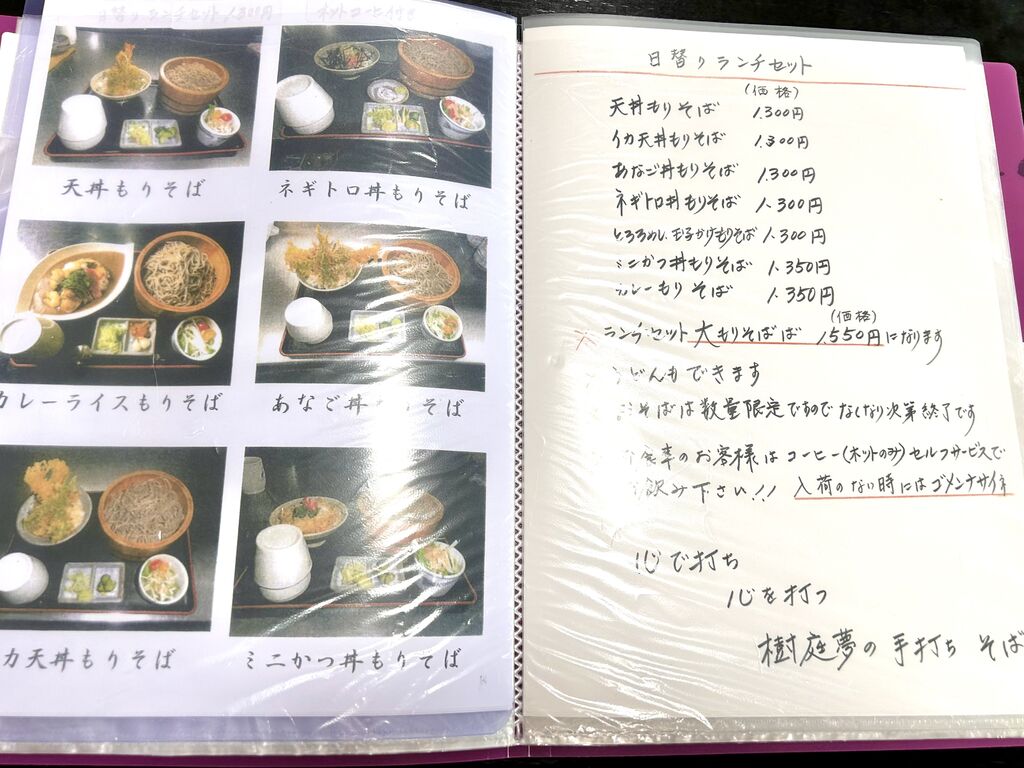 日替りランチセット 1,300円
ホットコーヒー付き
天丼もりそば
ネギトロ丼もりそば
カレーライスもりそば
あなご丼 そば
カ天丼もりそば
ミニかつ丼もりそば
日替りランチセット
(価格)
天丼もりそば 1.300円
イカ天丼もりそば 1.300円
あなご丼もりそば 1.300円
ネギトロ丼もりそば 1.300円
とろろめし, 玉子かけもりそば 1.300円
ミニかつ丼もりそば 1.350円
カレーもりそば 1.350円
(価格)
※ ランチセット大もりそばば 1,550円になります
うどんもできます
おそばは数量限定ですのでなくなり次第終了です
食事のお客様はコーヒー(ホットのみ)セルフサービスで
飲み下さい!! 入荷のない時にはゴメンナサイネ
心で打ち
心を打つ
樹庭夢の手打ちそば